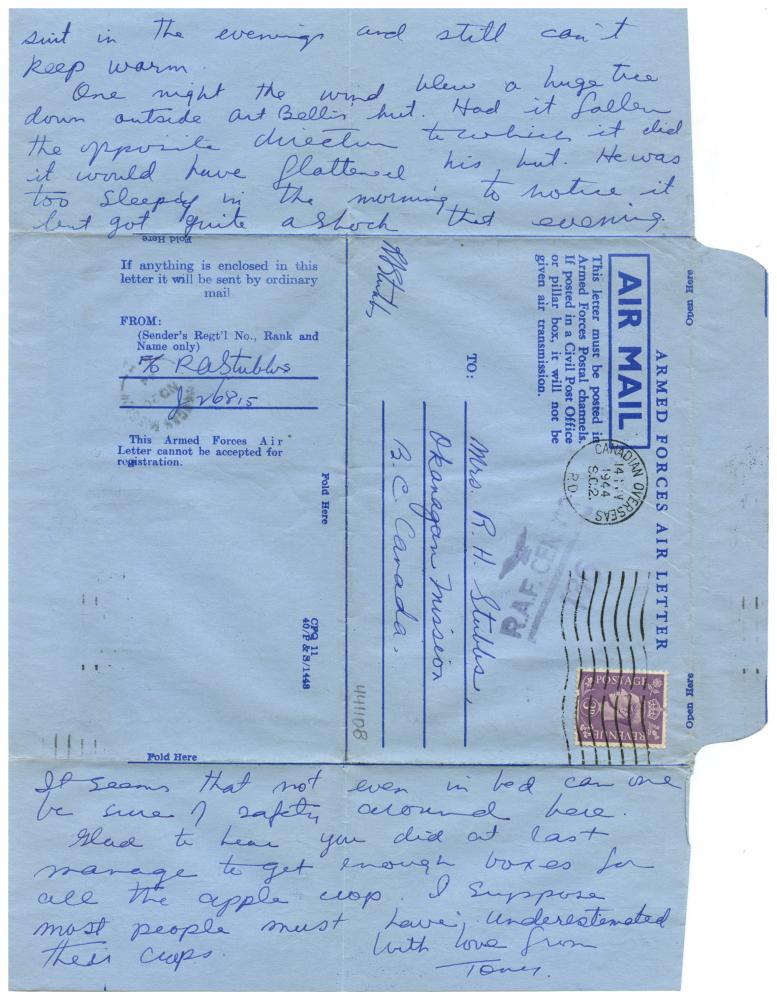 suit in the evenings and still can't
keep warm.
One night the wind blew a huge tree
down outside Art Bell's hut. Had it fallen
the opposite direction to which it did
it would have flattened his hut. He was
too sleepy in the morning to notice it
but got quite a shock that evening.
Fold Here
If anything is enclosed in this
letter it will be sent by ordinary
mail
FROM:
(Sender's Regt'l No., Rank and
Name only)
F/O R A Stubbs
J26815
This Armed Forces Air
Letter cannot be accepted for
registration.
Fold Here
CPQ 11
40/P & S/1448
Fold Here
RAStubbs
ARMED FORCES AIR LETTER
AIR MAIL
This letter must be posted in
Armed Forces Postal channels.
If posted in a Civil Post Office
or pillar box, it will not be
given air transmission.
Open Here
Open Here
CANADIAN OVERSEAS
14
1944
S.C.2.
P.O.
R.A.F. CEN
POSTAGE
REVENUE
3D
TO:
Mrs. R. H. Stubbs,
Okanagan Mission
B.C. Canada.
441108
It seems that not even in bed can one
be sure of safety around here.
Glad to hear you did at last
manage to get enough boxes for
all the apple crop. I suppose
most people must have underestemated
their crops.
With love from
Tony.